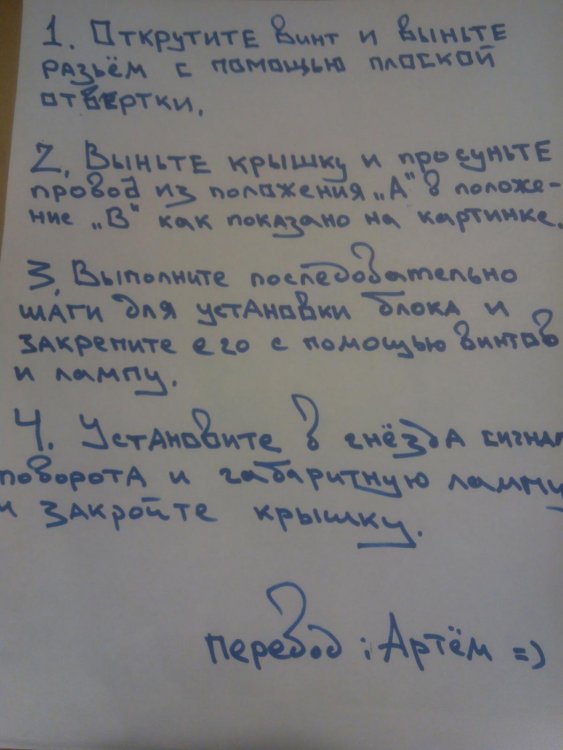 1. Открутите винт и выньте
разъём с помощью плоской
отвертки.
2. Выньте крышку и просуньте
провод из положения „А" в положе-
ние „В" как показано на картинке.
3. Выполните последовательно
шаги для установки блока и
закрепите его с помощью винтов
и лампу.
4. Установите в гнёзда сигнал
поворота и габаритную лампу
и закройте крышку.
перевод: Артём =)